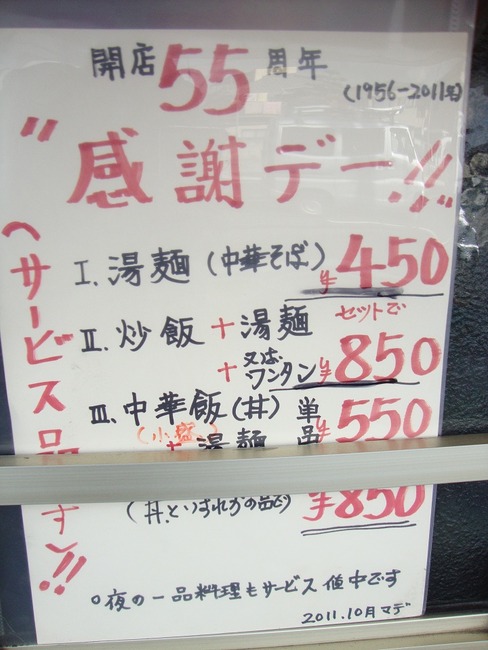 開店55周年
(1956-2011年)
"感謝デー!!"
I. 湯麺(中華そば) ¥450
II. 炒飯+湯麺 セットで
+又はワンタン ¥850
III. 中華飯(丼) 単品 ¥550
(小盛)
+湯麺
(丼といずれかの品で) ¥850
〜サービス品
です!!
○夜の一品料理もサービス値中です
2011.10月マデ